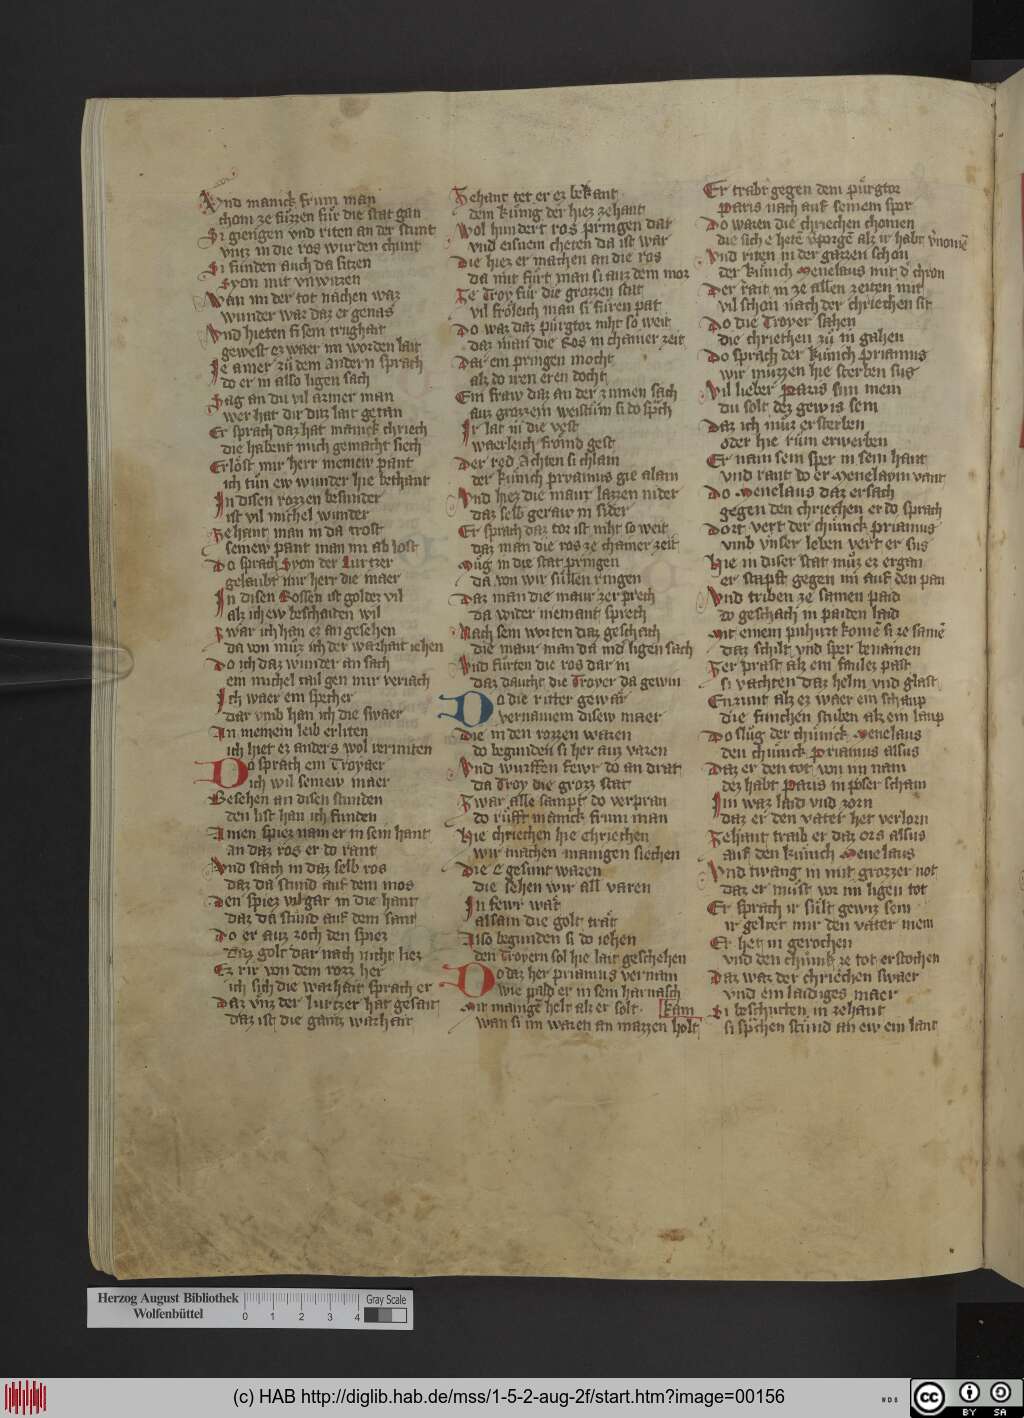 Vnd manick frum man
chom ze füzzen für die stat gan
Si giengen vnd riten an der stunt
vntz in die ros wurden chunt
Si funden auch da sitzen
Syon mit vnwitzen
Wan im der tot nachen waz
wunder waz daz er genas
Vnd hieten si sein trughait
gewest ez waer im worden lait
Ie ainer zü dem andern sprach
do er in also ligen sach
Sag an du vil armer man
wer hat dir ditz lait getan
Er sprach daz hat manick chriech
die habent mich gemacht siech
Erlöst mir herr meinew pant
ich tün ew wunder hie bechant
In disen rozzen besunder
ist vil michel wunder
Zehant man in da trost
seinew pant man im ab lost
Do sprach Syon der Lurtzer
gelaubt mir herr die maer
In disen Rossen ist goldez vil
alz ich ew beschaiden wil
Zwar ich han ez an gesehen
da von müz ich der warhait iehen
Do ich daz wunder an sach
ein michel tail gen mir veriach
Ich waer ein specher
dar vmb han ich die swaer
In meinem leib erliten
ich hiet ez anders wol vermiten
Do sprach ein Troyaer
ich wil seinew maer
Besehen an disen stunden
den list han ich funden
Ainen spiez nam er in sein hant
an daz ros er do rant
Vnd stach in daz selb ros
daz da stund auf dem mos
Den spiez vil gar in die hant
daz da stund auf dem sant
Do er auz zoch den spiez
Ditz golt dar nach nicht liez
Ez rir von dem rozz her
ich sich die warhait sprach er
Daz vnz der lurtzer hat gesait
daz ist die gantz warhait
Zehant tet er ez bekant
dem kunig der hiez zehant
Wol hundert ros pringen dar
vnd eisnein cheten da ist war
Die hiez er machen an die ros
da mit fürt man si auz dem moz
Ze Troy für die grozzen stat
vil frölich man si füren pat
Do waz daz pürgtor niht so weit
daz man die Ros in chainer zeit
Dar ein pringen mocht
alz do iren eren docht
Ein fraw daz an der zinnen sach
auz grozzem weistum si do sprch
Ir lat in die vest
waerleich fromd gest
Der red Achten si chlain
der kunich pryamus gie alain
Vnd hiez die maur lazzen nider
daz selb geraw in sider
Er sprach daz tor ist niht so weit
daz man die ros ze chainer zeit
Mug in die stat pringen
da von wir süllen ringen
Daz man die maur zerprech
da wider niemant sprech
Nach sein worten daz geschach
die maur man da nid ligen sach
Vnd fürten die ros dar in
daz daucht die Troyer da gewin
Do die ritter gewar
vernamen disew maer
Die in den rozzen waren
do begunden si her auz varen
Vnd wurffen fewr do an drat
da Troy die grozz stat
Zwar alle sampt do verpran
do rüfft manick frum man
Hie chriechen hie chriechen
wir machen manigen siechen
Die E gesunt waren
die sehen wir all varen
In fewr wat
alsam die golt trat
Also begunden si do iehen
den Troyern sol hie lait geschehen
Do daz her priamus vernam
wie pald er in sein harnasch kam
Mit mainge helt alz er solt
wan si im waren an mazzen holt
Er trabt gegen dem pürgtor
Paris nach auf seinem spor
Do waren die chriechen chomen
die sich e hete vporge alz ir habt vnome
Vnd riten in der gazzen schon
der künich Menelaus mit d chron
Der rait in ze allen zeiten mit
vil schon nach der chriechen sit
Do die Troyer sahen
die chriechen zü in gahen
Do sprach der künich priamus
wir müzzen hie sterben sus
Vil lieber Paris sun mein
du solt dez gewis sein
Daz ich müz ersterben
oder hie rüm erwerben
Er nam sein sper in sein hant
vnd rant do er Menelaum vant
Do Menelaus daz ersach
gegen den chriechen er do sprach
Dort vert der chünick priamus
vmb vnser leben vert er sus
Hie in diser stat müz ez ergan
er stapft gegen im auf den pan
Vnd triben ze samen paid
do geschach in paiden laid
Mit einem puhurt kome si ze same
daz schilt vnd sper benamen
Zer prast alz ein faulez past
si vachten daz helm vnd glast
Enzunt alz ez waer ein schaup
die funchen stuben alz ein laup
Do slüg der chünick Menelaus
den chünick Priamus alsus
Daz er den tot von im nam
dez habt Paris in poser scham
Im waz laid vnd zorn
daz er den vater het verlorn
Zehant traib er daz ors alsus
auf den künich Menelaus
Vnd twang in mit grozzer not
daz er müst vor im ligen tot
Er sprach ir sült gewiz sein
ir geltet mir den vater mein
Er het in gerochen
vnd den chünik ze tot erstochen
Daz waz der chriechen swaer
vnd ein laidiges maer
Si beschuten in zehant
si sprchen stund an ew ein lant
Herzog August Bibliothek
Wolfenbüttel
0 1 2 3 4
Gray Scale
(c) HAB http://diglib.hab.de/mss/1-5-2-aug-2f/start.htm?image=00156
WDB
cc BY SA